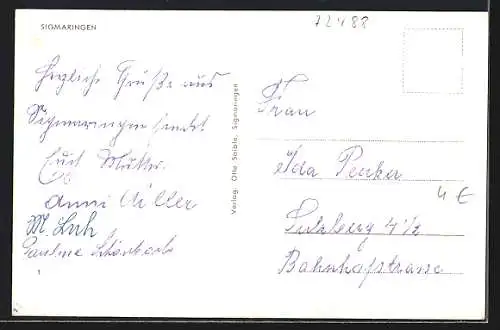 SIGMARINGEN
72488
Herzliche Grüße aus
Sigmaringen sendet
Euch Mutter.
Anni Hiller
M. Luh
Pauline
1
Verlag: Otto Saible, Sigmaringen
Frau
Ida Penker
4 €
Sulzberg 4½
Bahnhofstrasse